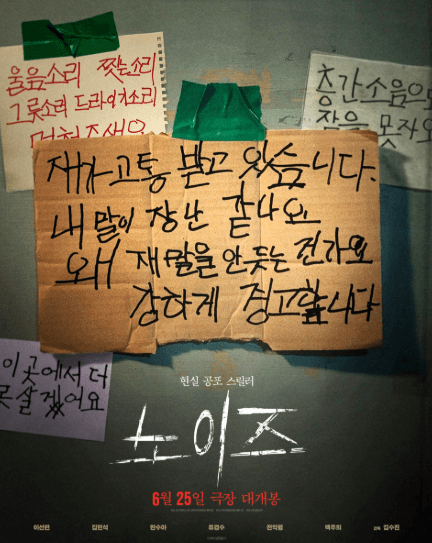 울음소리 짖는소리
그릇소리 드라이기소리
멈춰주세요
층간소음으로
잠을 못자요
재가 고통 받고 있습니다.
내 말이 장난 같나요
왜 재 말을 안 듣는 건가요
강하게 경고합니다
이곳에서 더
못살겠어요
현실 공포 스릴러
노이즈
6월 25일 극장 대개봉
이선빈 김민석 한수아 류경수 전익령 백주희 감독 김수진